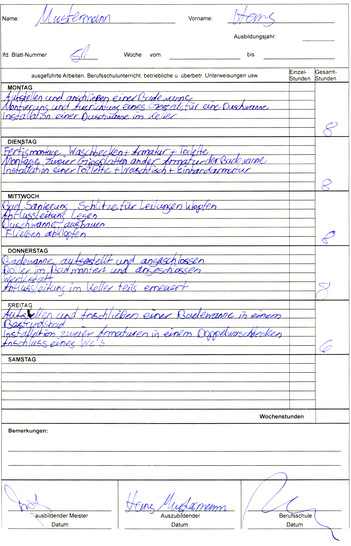 Name: Mustermann Vorname: Hans
Ausbildungsjahr:
lfd. Blatt-Nummer 61 Woche vom bis
ausgeführte Arbeiten, Berufsschulunterricht, betriebliche u. überbetr. Unterweisungen usw. Einzel-Stunden Gesamt-Stunden
MONTAG
Aufstellen und anschließen einer Badewanne
Montierung und Ausrichtung eines Gestell für eine Duschwanne
Installation einer Duschwanne im Keller
8
DIENSTAG
Fertigmontage Waschbecken + Armatur + Toilette
Montage zweier Gipsplatten an der Armatur der Badewanne
Installation einer Toilette + Waschtisch + Einhandarmatur
8
MITTWOCH
Bad Sanierung Schlitze für Leitungen klopfen
Abflussleitung legen
Duschwanne ausbauen
Fliesen abklopfen
8
DONNERSTAG
Badewanne aufgestellt und angeschlossen
Boiler im Bad montiert und angeschlossen
Werkstatt
Abflussleitung im Keller teils erneuert
8
FREITAG
Aufstellen und Anschließen einer Badewanne in einem
Installation zweier Armaturen in einem Doppelwaschbecken
Anschluss eines Wc's
6
SAMSTAG
Wochenstunden
Bemerkungen:
Hans Mustermann
ausbildender Meister Auszubildender Berufsschule
Datum Datum Datum